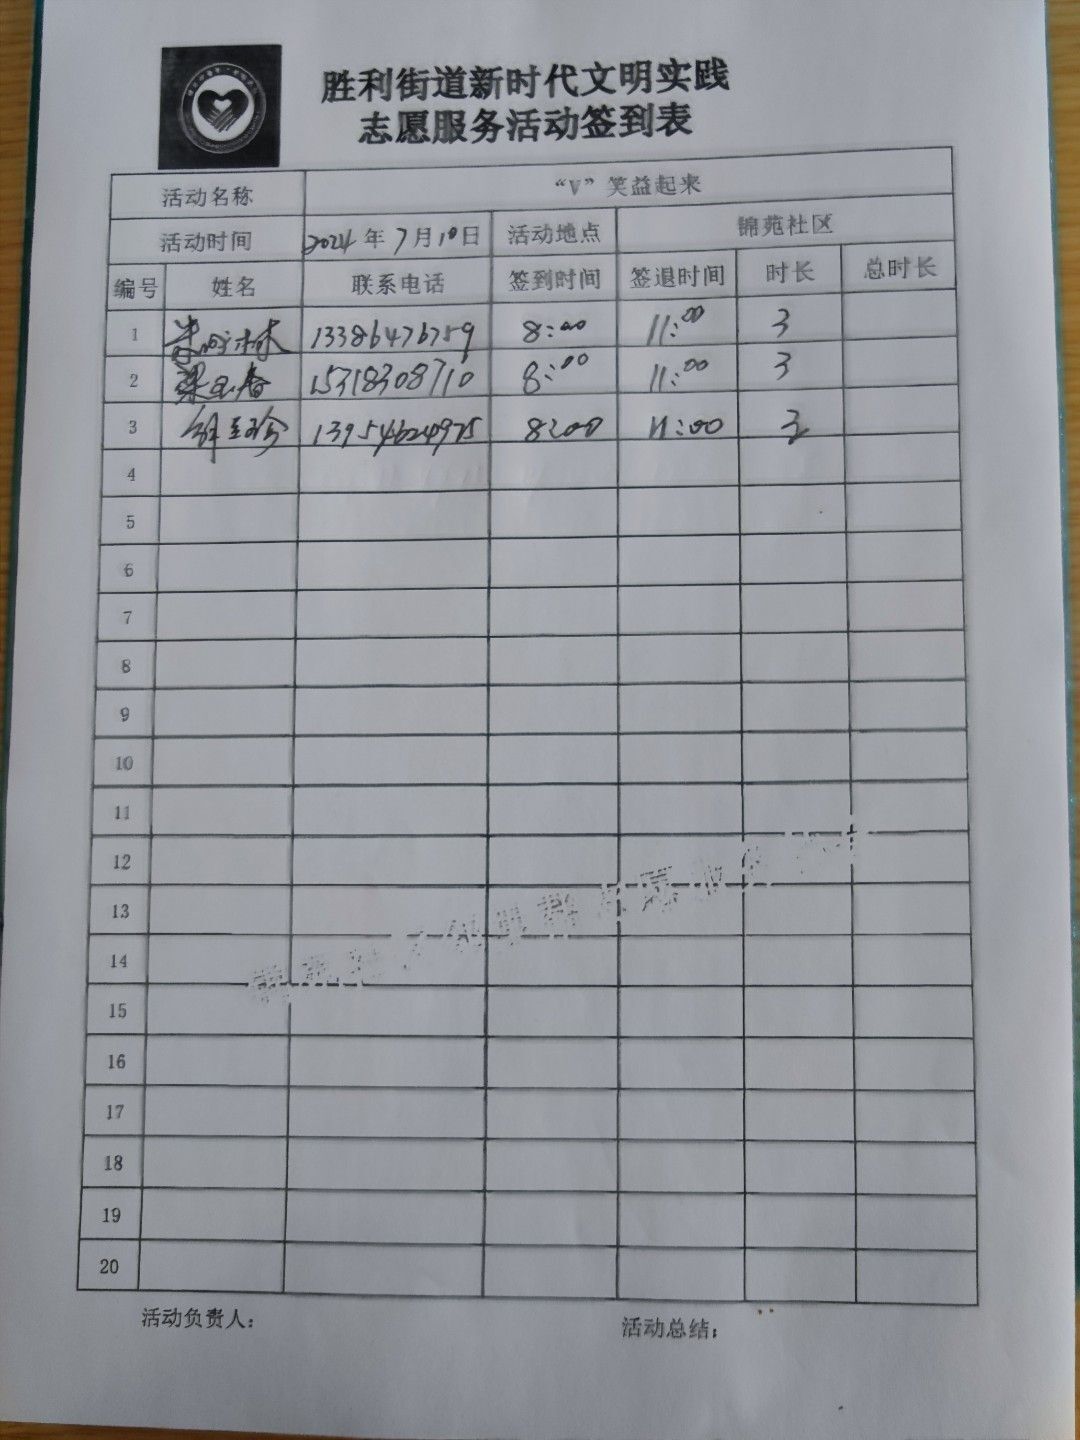 胜利街道新时代文明实践
志愿服务活动签到表
活动名称 “V”笑益起来
活动时间 2024年7月10日 活动地点 锦苑社区
编号 姓名 联系电话 签到时间 签退时间 时长 总时长
1 13386476759 8:00 11:00 3
2 15318308710 8:00 11:00 3
3 13954624975 8:00 11:00 3
4
5
6
7
8
9
10
11
12
13
14
15
16
17
18
19
20
活动负责人：
活动总结：